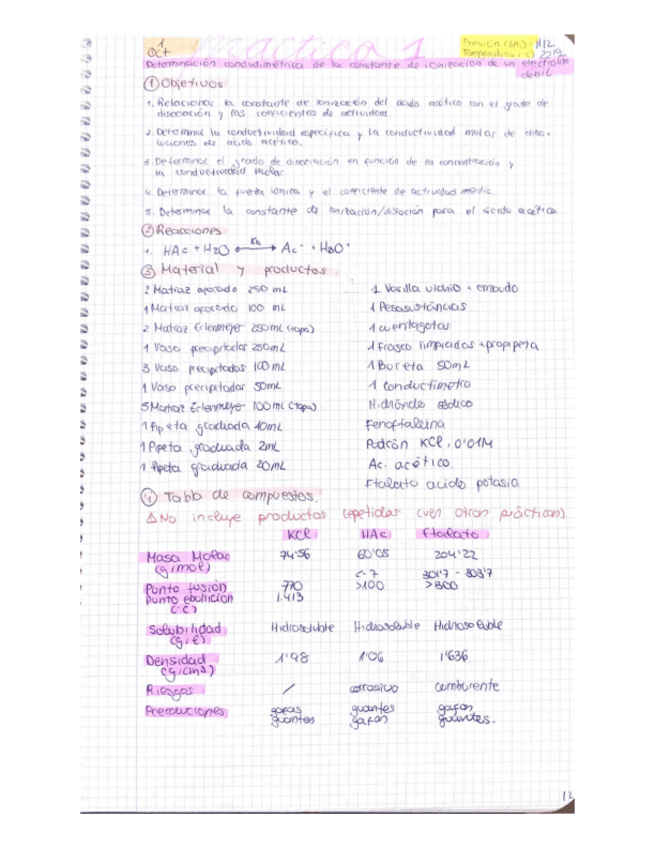 1
Oct
Práctica 1
Presión (atm):
Temperatura (°C)
Determinación conductimétrica de la constante de ionización de un electrolito
débil
① Objetivos
1. Relacionar la constante de ionización del ácido acético con el grado de
disociación y los coeficientes de actividad.
2. Determinar la conductividad específica y la conductividad molar de diso-
luciones de ácido acético.
3. Determinar el grado de disociación en función de la concentración y
la conductividad molar.
4. Determinar la fuerza iónica y el coeficiente de actividad medio.
5. Determinar la constante de ionización/ para el ácido acético
② Reacciones
1. HAc + H2O Ka Ac⁻ + H3O⁺
③ Material y productos
2 Matraz aforado 250 mL
1 Matraz aforado 100 mL
2 Matraz Erlenmeyer 250mL (tapa)
1 Vaso precipitados 250mL
3 Vaso precipitados 100 mL
1 Vaso precipitados 50mL
5 Matraz Erlenmeyer 100mL (tapa)
1 Pipeta graduada 10mL
1 Pipeta graduada 2mL
1 Pipeta graduada 20mL
1 Varilla vidrio + embudo
1 Pesasustancias
1 cuentagotas
1 frasco limpiador + propipeta
1 Bureta 50mL
1 conductímetro
Hidróxido sódico
Fenoftaleína
Patrón KCl, 0'01M
Ac. acético
Ftalato acido potasio
④ Tabla de compuestos.
△ No incluye productos repetidos (ver otras prácticas)
KCl HAc Ftalato
Masa Molar 74'56 60'05 204'22
(g/mol)
Punto fusión 770
Punto ebullición 1.413 >100 >300
(°C)
Solubilidad Hidrosoluble Hidrosoluble Hidrosoluble
(g/L)
Densidad 1'98 1'06 1'636
(g/cm3)
Riesgos / corrosivo comburente
Precauciones gafas guantes gafas
guantes gafas guantes.
12